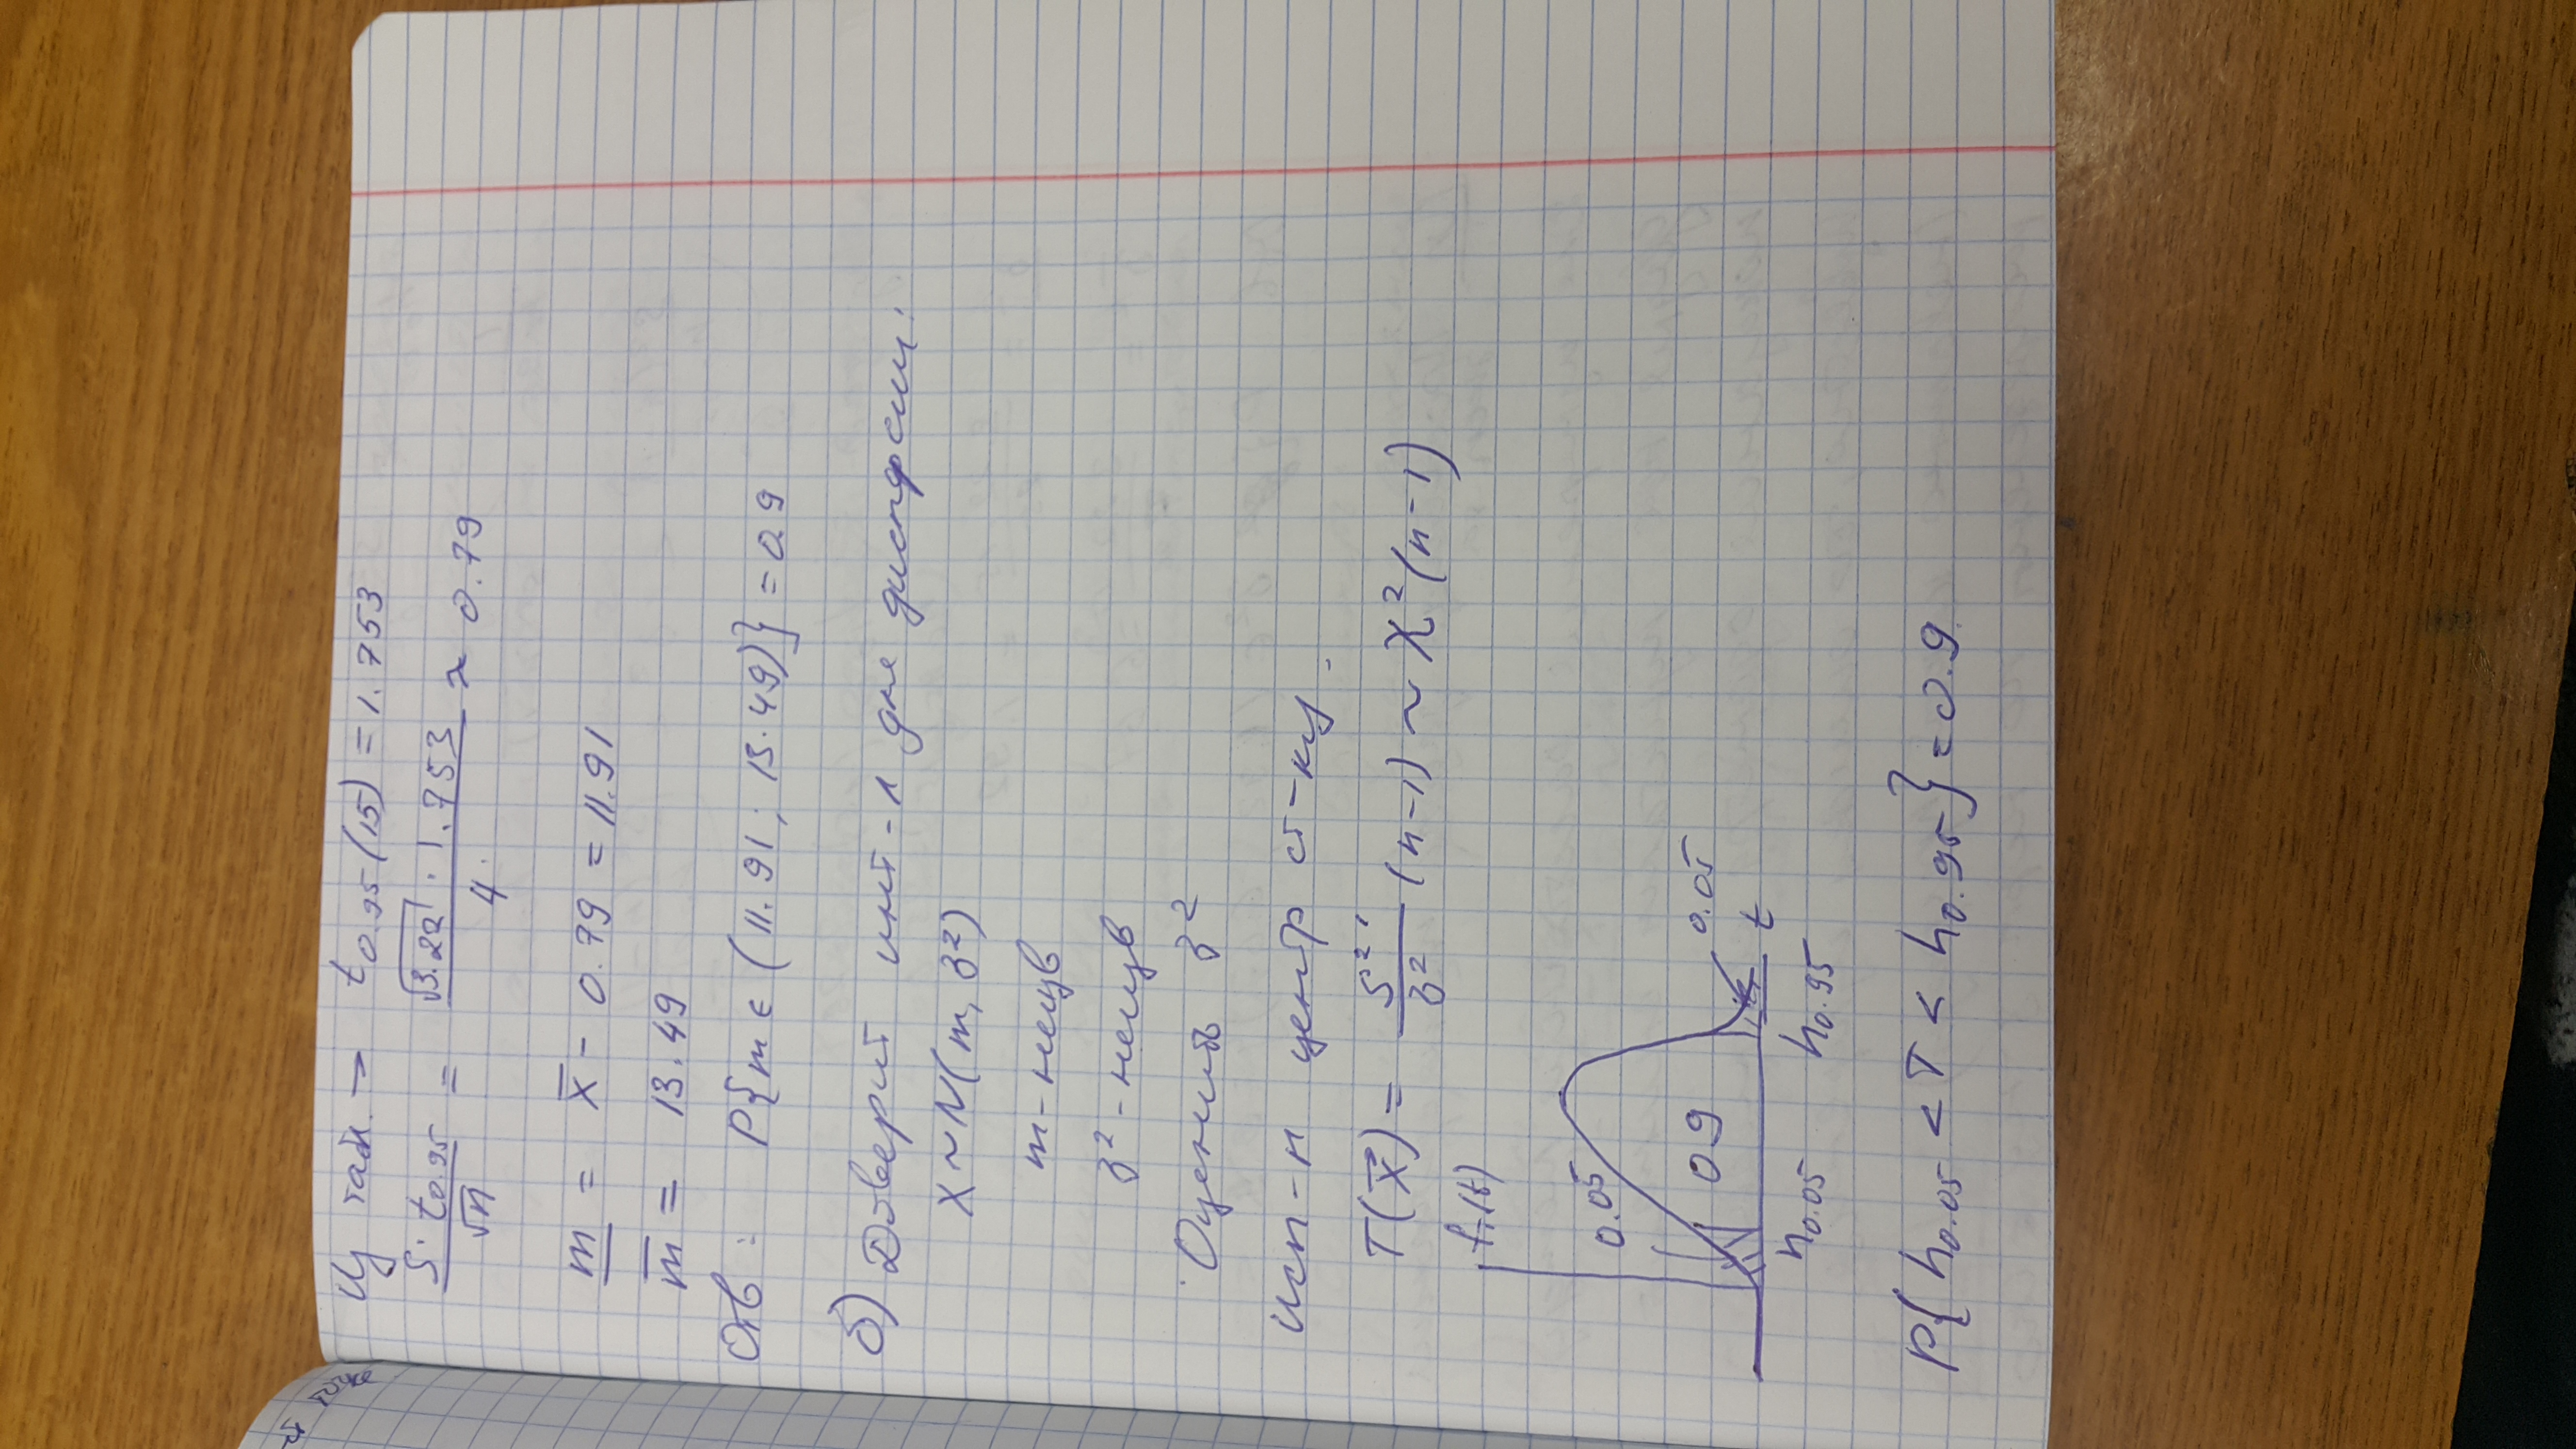 Из табл. → t0.95(15) = 1.753
S · t0.95 / √n = √3.22 · 1.753 / 4 ≈ 0.79
m = x̅ - 0.79 = 11.91
m̅ = 13.49
Отв: P{m ∈ (11.91; 13.49)} = 0.9
б) Доверит инт-л для дисперсии:
X ~ N(m, σ²)
m - неизв
σ² - неизв
Оценить σ²
исп-л центр ст-ку.
T(X⃗) = S²' / σ² (n-1) ~ χ²(n-1)
fT(t)
0.05
0.9
0.05
t
h0.05
h0.95
P{h0.05 < T < h0.95} = 0.9